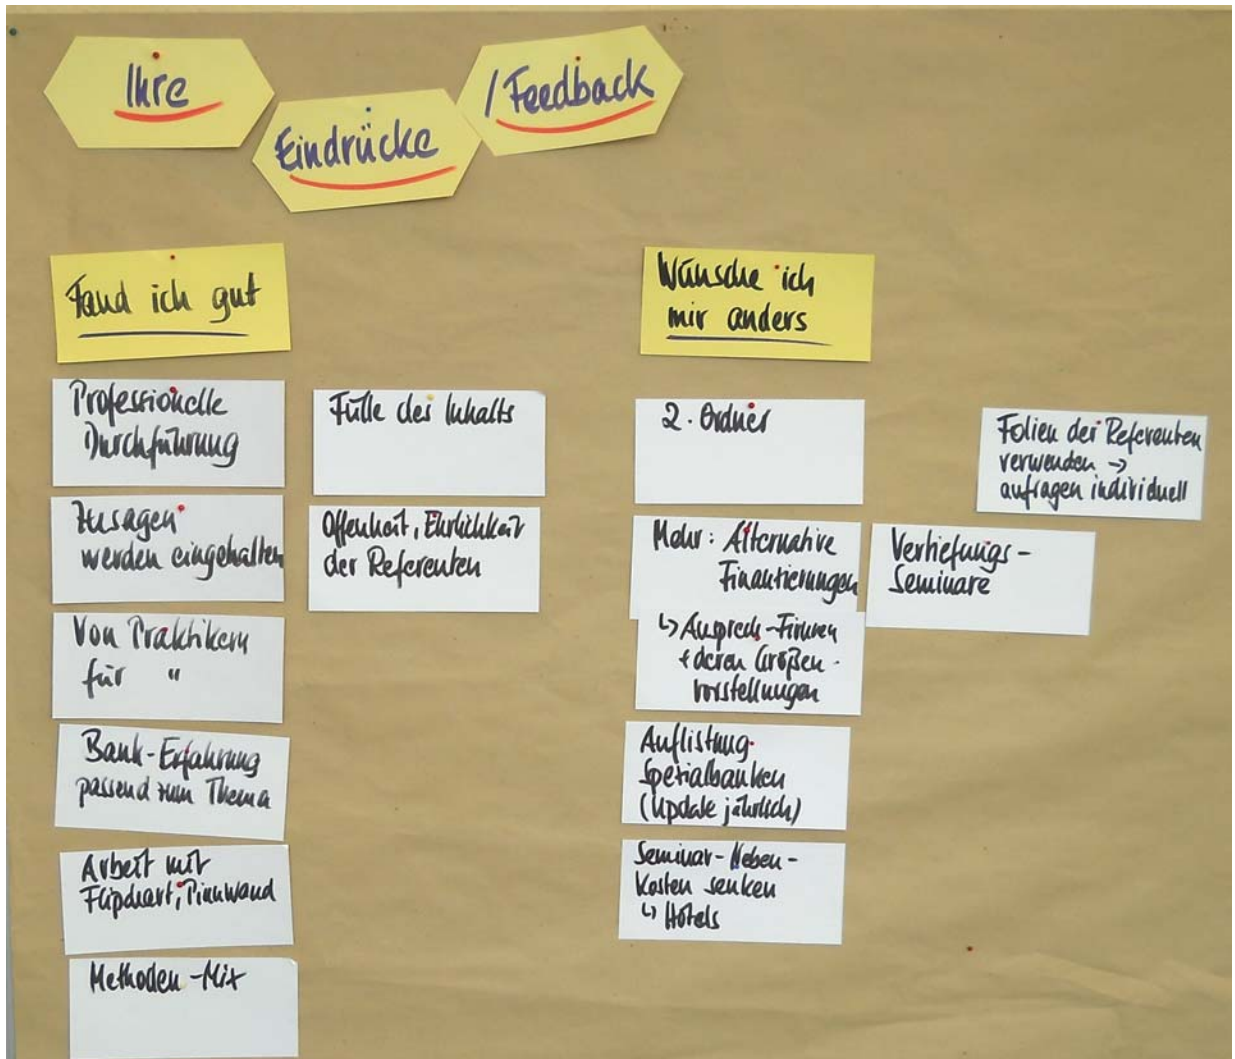 Ihre
Eindrücke
/ Feedback
Fand ich gut
Professionelle
Durchführung
Zusagen
werden eingehalten
Von Praktikern
für "
Bank-Erfahrung
passend zum Thema
Arbeit mit
Flipchart, Pinnwand
Methoden-Mix
Fülle des Inhalts
Offenheit, Ehrlichkeit
der Referenten
Wünsche ich
mir anders
2. Ordner
Mehr: Alternative
Finanzierungen
↳ Ansprech-Firmen
+ deren Größen-
vorstellungen
Auflistung
Spezialbanken
(Update jährlich)
Seminar-Neben-
Kosten senken
↳ Hotels
Vertiefungs-
Seminare
Folien der Referenten
verwenden →
anfragen individuell